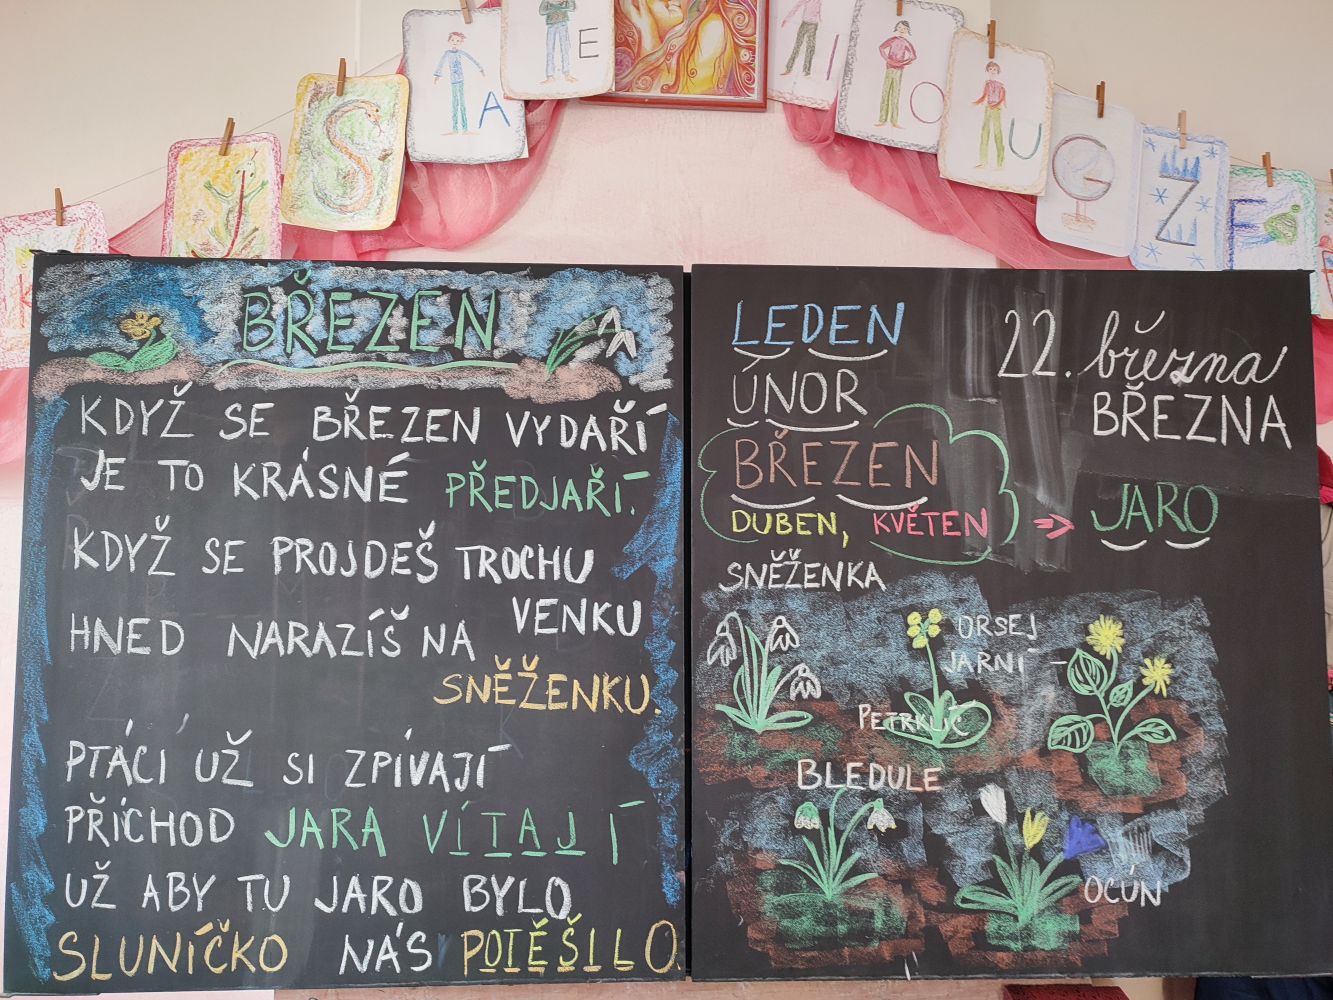 S
A
E
I
O
U
Z
F
BŘEZEN
KDYŽ SE BŘEZEN VYDAŘÍ
JE TO KRÁSNÉ PŘEDJAŘÍ.
KDYŽ SE PROJDEŠ TROCHU
VENKU
HNED NARAZÍŠ NA
SNĚŽENKU.
PTÁCI UŽ SI ZPÍVAJÍ
PŘÍCHOD JARA VÍTAJÍ
UŽ ABY TU JARO BYLO
SLUNÍČKO NÁS POTĚŠILO
LEDEN
ÚNOR
BŘEZEN
DUBEN, KVĚTEN → JARO
22. března
BŘEZNA
SNĚŽENKA
ORSEJ
JARNÍ –
PETRKLÍČ
BLEDULE
OCÚN